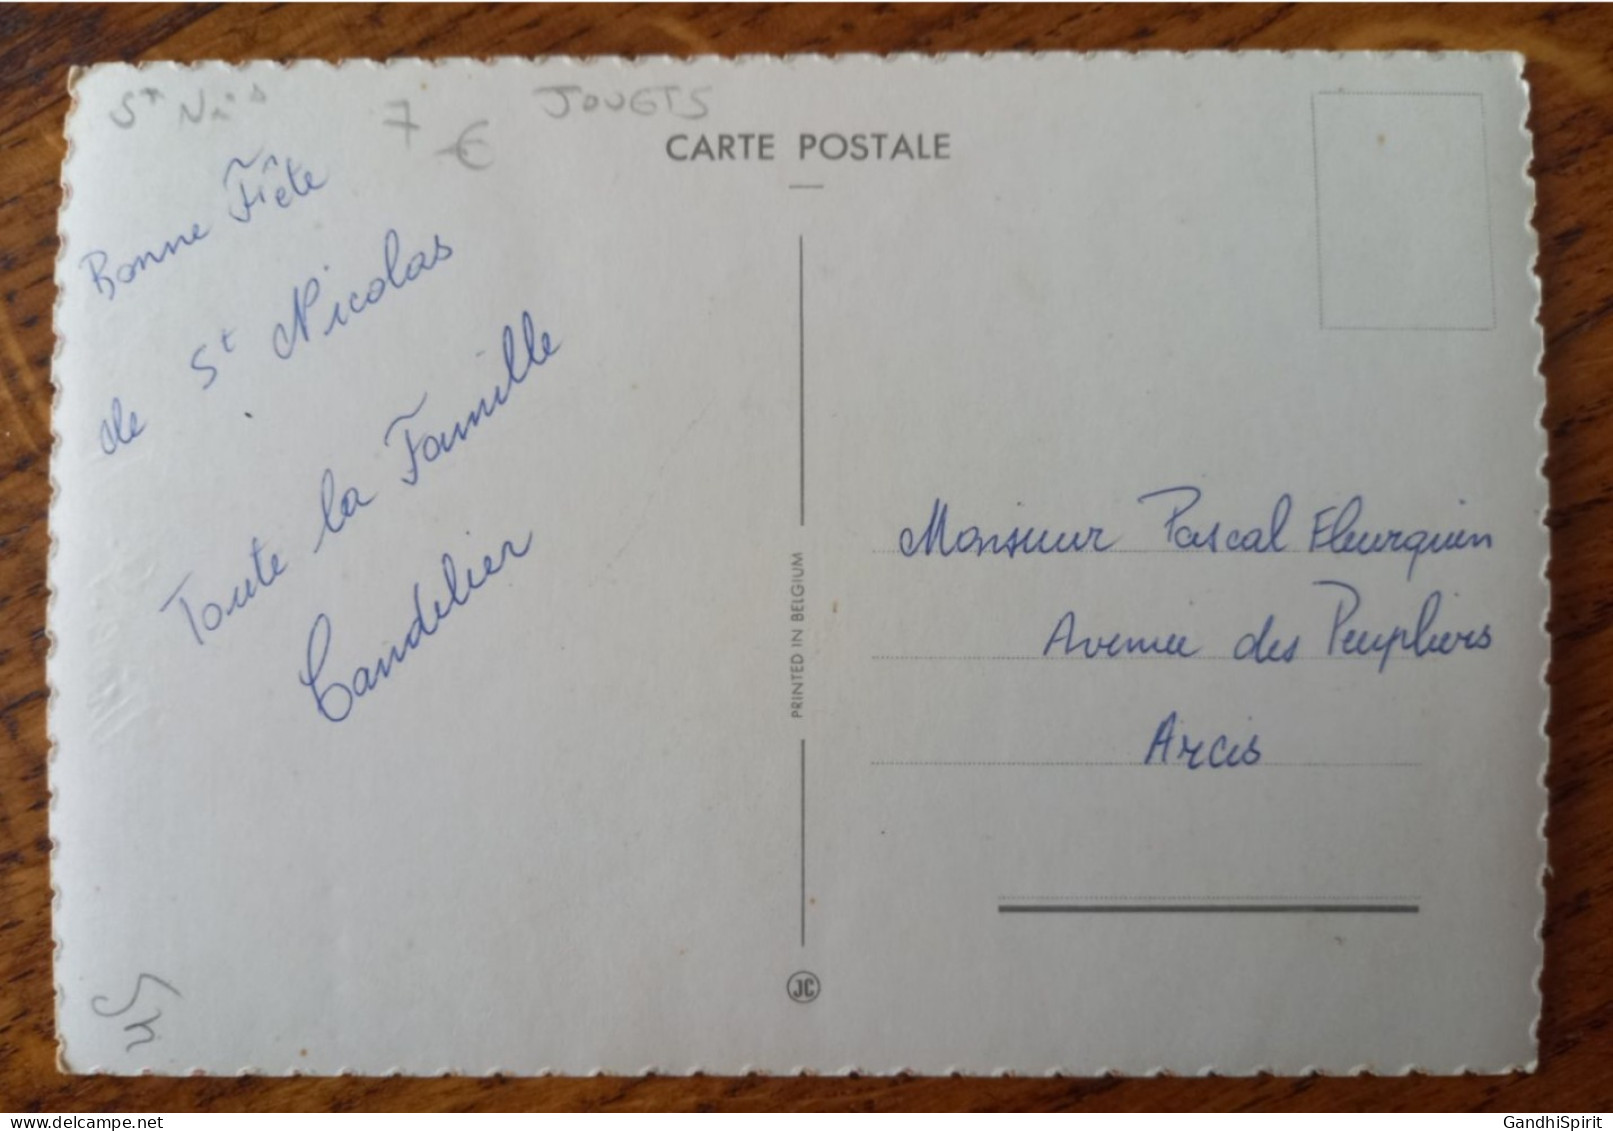 St Nis
7 €
JOUETS
CARTE POSTALE
Bonne Fête
de St Nicolas
Toute la Famille
Candelier
PRINTED IN BELGIUM
Monsieur Pascal Fleurquin
Avenue des Peupliers
Arcis
JC
GandhiSpirit